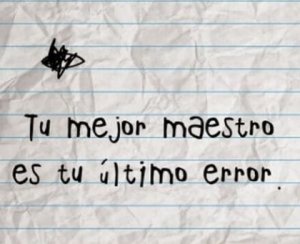 Tu mejor maestro
es tu último error.